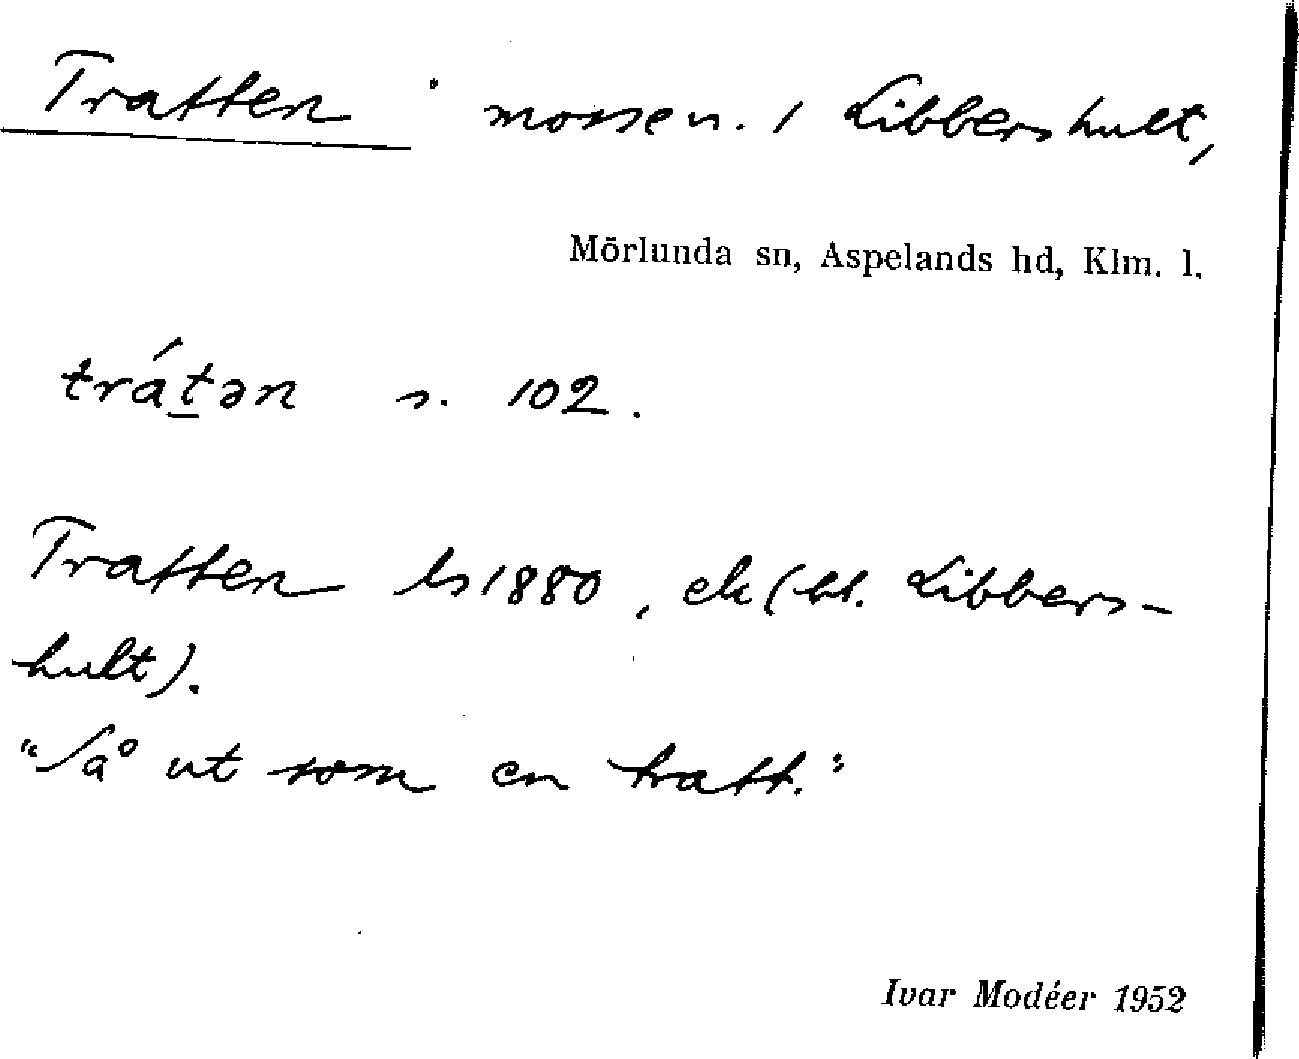 Tratten mossen. 1 Libbershult,
Mörlunda sn, Aspelands hd, Klm. l.
trát̲ən s. 102.
Tratten ls 1880, ek (bl. Libbers-
hult).
"Så ut som en tratt."
Ivar Modéer 1952